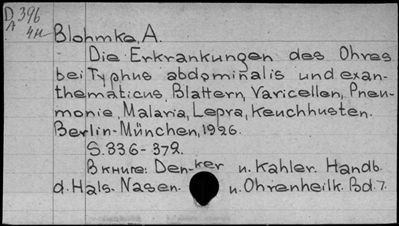 D 396
A 4н
Blohmke, A.
Die Erkrankungen des Ohres
bei Typhus abdominalis und exan-
thematicus, Blattern, Varicellen, Pneu-
monie, Malaria, Lepra, Keuchhusten.
Berlin-München, 1926.
S. 336-372.
В книге: Den-ker u. Kahler. Handb.
d. Hals- Nasen- u. Ohrenheilk. Bd. 7.